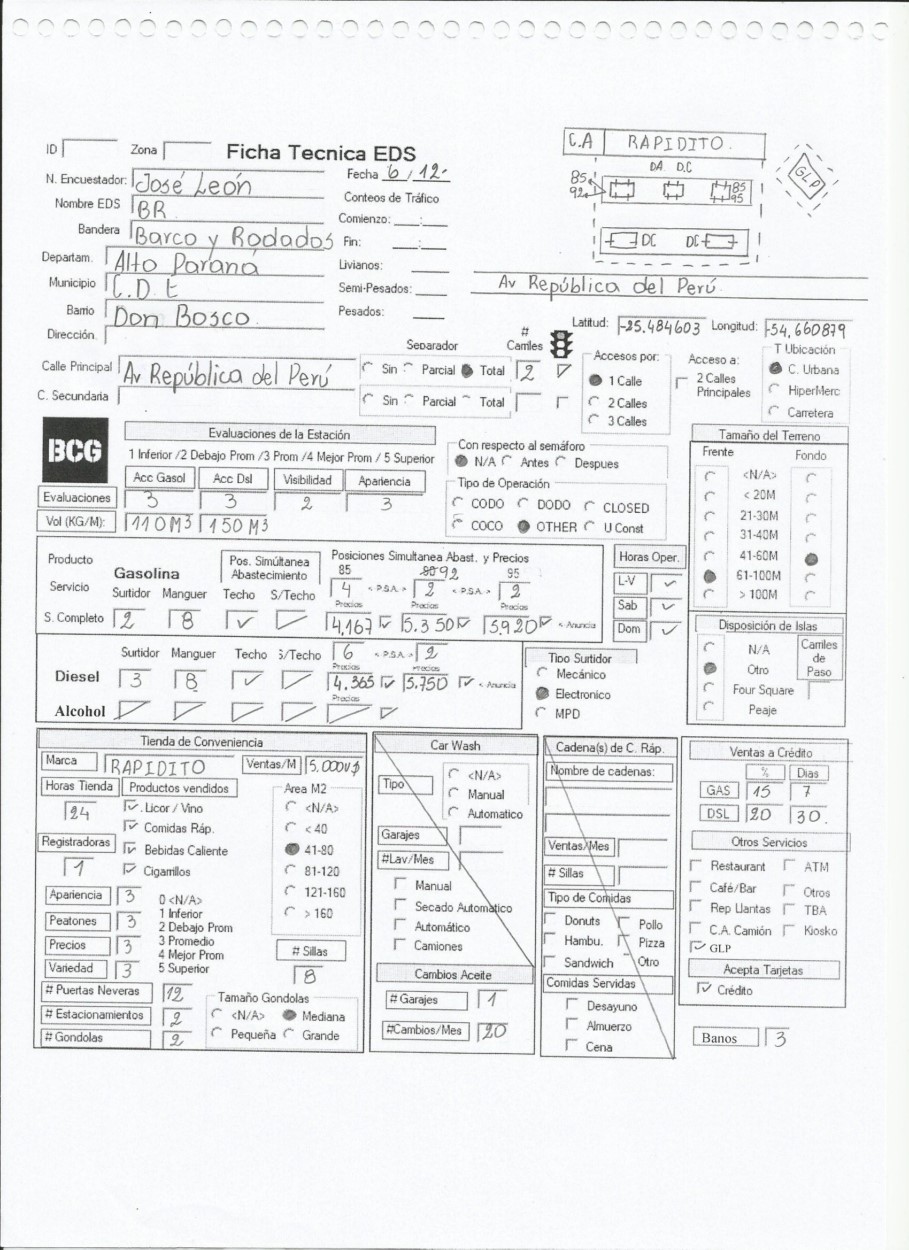 ID Zona Ficha Tecnica EDS
C.A RAPIDITO.
DA D.C
85 92 85 95
GLP
DC DC
Av República del Perú
N. Encuestador: José León Fecha 6 / 12.
Nombre EDS BR Conteos de Tráfico
Bandera Barco y Rodados Comienzo: __:__
Departam. Alto Paraná Fin: __:__
Municipio C.D.E Livianos:
Barrio Don Bosco. Semi-Pesados:
Dirección. Pesados:
Latitud: -25.484603 Longitud: -54.660879
Separador # Carriles
Calle Principal Av República del Perú Sin Parcial Total 2
C. Secundaria Sin Parcial Total
Accesos por: 1 Calle 2 Calles 3 Calles
Acceso a: 2 Calles Principales
T Ubicación C. Urbana HiperMerc Carretera
BCG
Evaluaciones de la Estación
1 Inferior /2 Debajo Prom /3 Prom /4 Mejor Prom / 5 Superior
Acc Gasol Acc Dsl Visibilidad Apariencia
Evaluaciones 3 3 2 3
Vol (KG/M): 110 M³ 150 M³
Con respecto al semáforo
N/A Antes Despues
Tipo de Operación
CODO DODO CLOSED
COCO OTHER U Const
Tamaño del Terreno
Frente Fondo
<N/A>
< 20M
21-30M
31-40M
41-60M
61-100M
> 100M
Producto Servicio Gasolina
Pos. Simúltanea Abastecimiento
Posiciones Simultanea Abast. y Precios
85 92 95
Surtidor Manguer Techo S/Techo 4 < P.S.A. > 2 < P.S.A. > 2
Precios Precios Precios
S. Completo 2 8 4,167 5.350 5,920 < Anuncia
Horas Oper.
L-V
Sab
Dom
Surtidor Manguer Techo S/Techo 6 < P.S.A. > 2
Precios Precios
Diesel 3 8 4.365 5.750 < Anuncia
Precios
Alcohol
Tipo Surtidor
Mecánico
Electronico
MPD
Disposición de Islas
N/A
Otro
Four Square
Peaje
Carriles de Paso
Tienda de Conveniencia
Marca RAPIDITO Ventas/M 5,000U$
Horas Tienda 24
Productos vendidos
Licor / Vino
Comidas Ráp.
Bebidas Caliente
Cigarrillos
Registradoras 1
Area M2
<N/A>
< 40
41-80
81-120
121-160
> 160
Apariencia 3
Peatones 3
Precios 3
Variedad 3
0 <N/A>
1 Inferior
2 Debajo Prom
3 Promedio
4 Mejor Prom
5 Superior
# Sillas 8
# Puertas Neveras 12
# Estacionamientos 2
# Gondolas 2
Tamaño Gondolas
<N/A> Mediana
Pequeña Grande
Car Wash
Tipo
<N/A>
Manual
Automatico
Garajes
#Lav/Mes
Manual
Secado Automático
Automático
Camiones
Cambios Aceite
# Garajes 1
#Cambios/Mes 20
Cadena(s) de C. Ráp.
Nombre de cadenas:
Ventas/Mes
# Sillas
Tipo de Comidas
Donuts Pollo
Hambu. Pizza
Sandwich Otro
Comidas Servidas
Desayuno
Almuerzo
Cena
Ventas a Crédito
% Dias
GAS 15 7
DSL 20 30.
Otros Servicios
Restaurant ATM
Café/Bar Otros
Rep Llantas TBA
C.A. Camión Kiosko
GLP
Acepta Tarjetas
Crédito
Banos 3